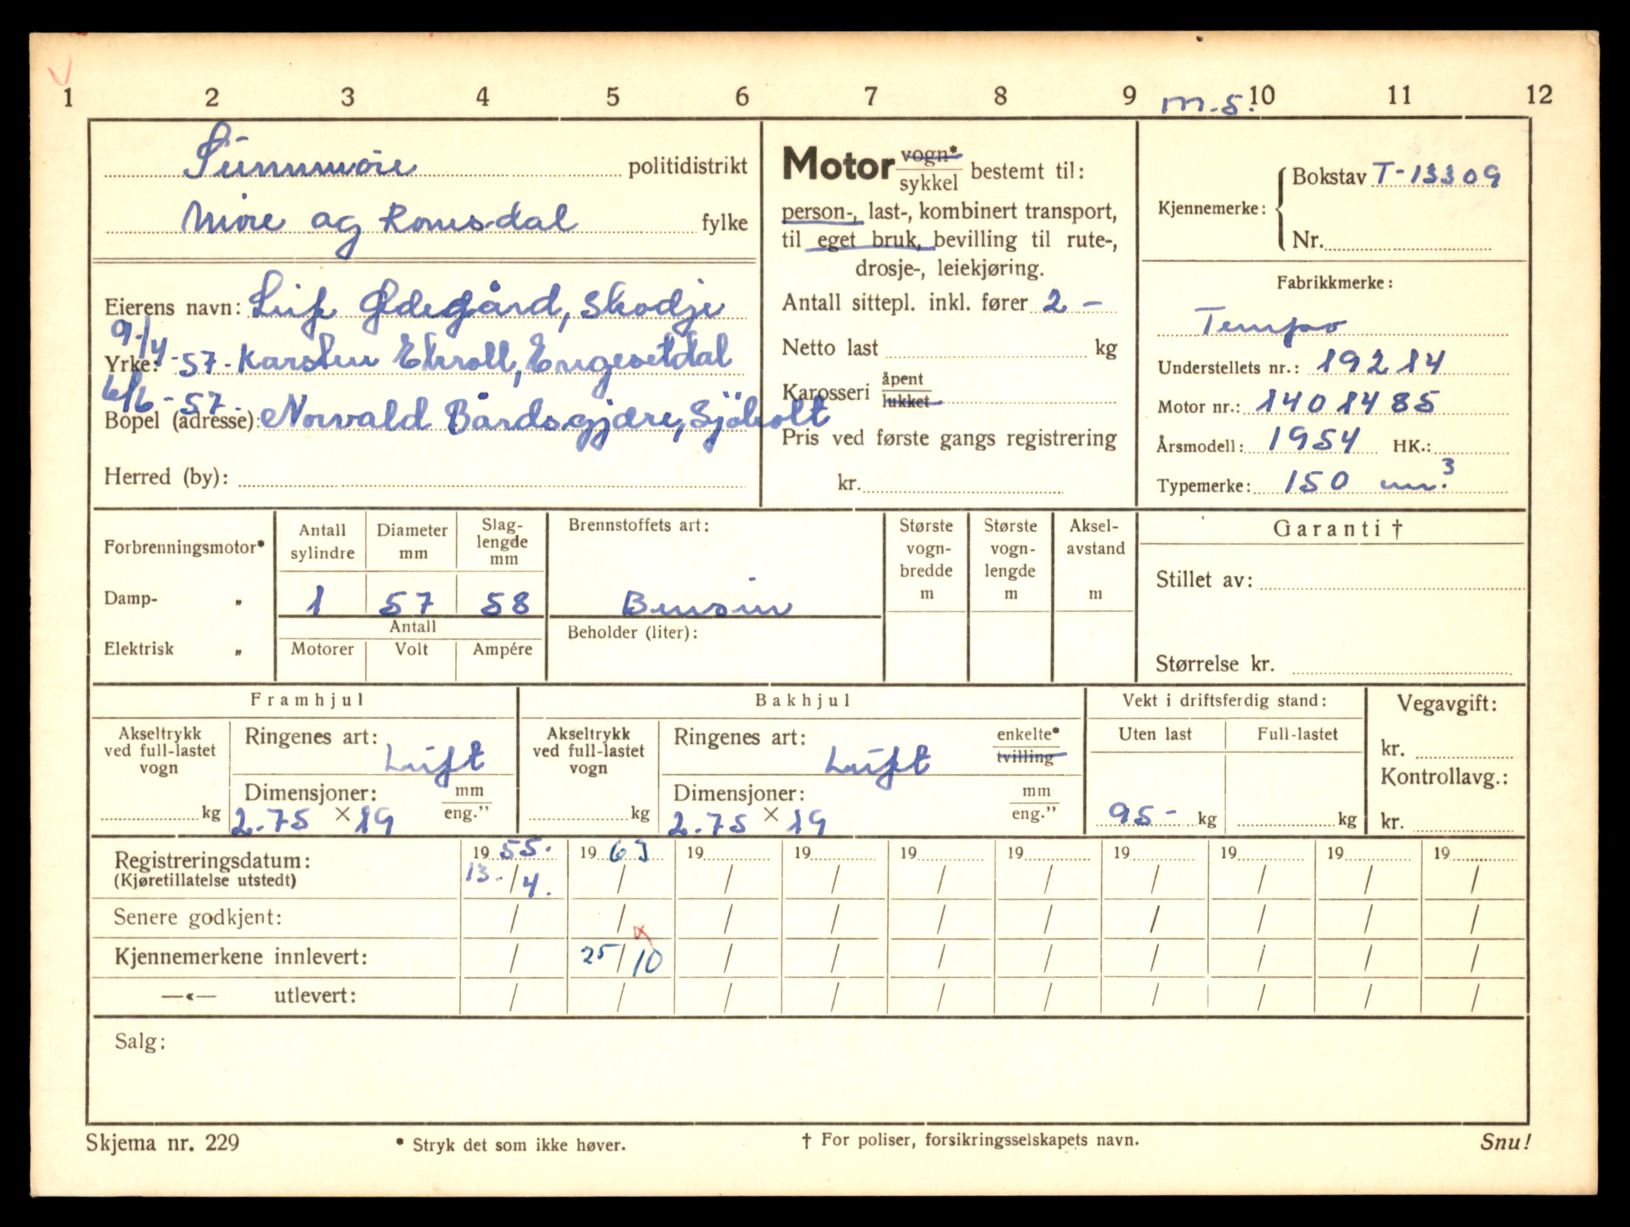 1 2 3 4 5 6 7 8 9 m.s. 10 11 12
Sunnmøre politidistrikt
Møre og Romsdal fylke
Eierens navn: Leif Ødegård, Skodje
9/4-57. Yrke: Karsten Ekroll, Engesetdal
6/6-57. Bopel (adresse): Norvald Bårdsgjære, Sjøholt
Herred (by):
Motor vogn* sykkel bestemt til:
person-, last-, kombinert transport,
til eget bruk, bevilling til rute-,
drosje-, leiekjøring.
Antall sittepl. inkl. fører 2 -
Netto last kg
Karosseri åpent lukket
Pris ved første gangs registrering
kr.
Kjennemerke: Bokstav T-13309
Nr.
Fabrikkmerke:
Tempo
Understellets nr.: 19214
Motor nr.: 1401485
Årsmodell: 1954 HK.:
Typemerke: 150 cm.3
Forbrenningsmotor*
Damp- „
Elektrisk „
Antall sylindre Diameter mm Slag-lengde mm
1 57 58
Antall
Motorer Volt Ampére
Brennstoffets art:
Bensin
Beholder (liter):
Største vogn-bredde m
Største vogn-lengde m
Aksel-avstand m
Garanti †
Stillet av:
Størrelse kr.
Framhjul
Akseltrykk ved full-lastet vogn kg
Ringenes art: Luft
Dimensjoner: mm eng.”
2.75 × 19
Bakhjul
Akseltrykk ved full-lastet vogn kg
Ringenes art: Luft enkelte* tvilling
Dimensjoner: mm eng.”
2.75 × 19
Vekt i driftsferdig stand:
Uten last Full-lastet
95- kg kg
Vegavgift:
kr.
Kontrollavg.:
kr.
Registreringsdatum: 19 55. 19 63 19 19 19 19 19 19 19 19
(Kjøretillatelse utstedt) 13./4. / / / / / / / / /
Senere godkjent: / / / / / / / / / /
Kjennemerkene innlevert: / 25/10 / / / / / / / /
—«— utlevert: / / / / / / / / / /
Salg:
Skjema nr. 229 * Stryk det som ikke høver. † For poliser, forsikringsselskapets navn. Snu!